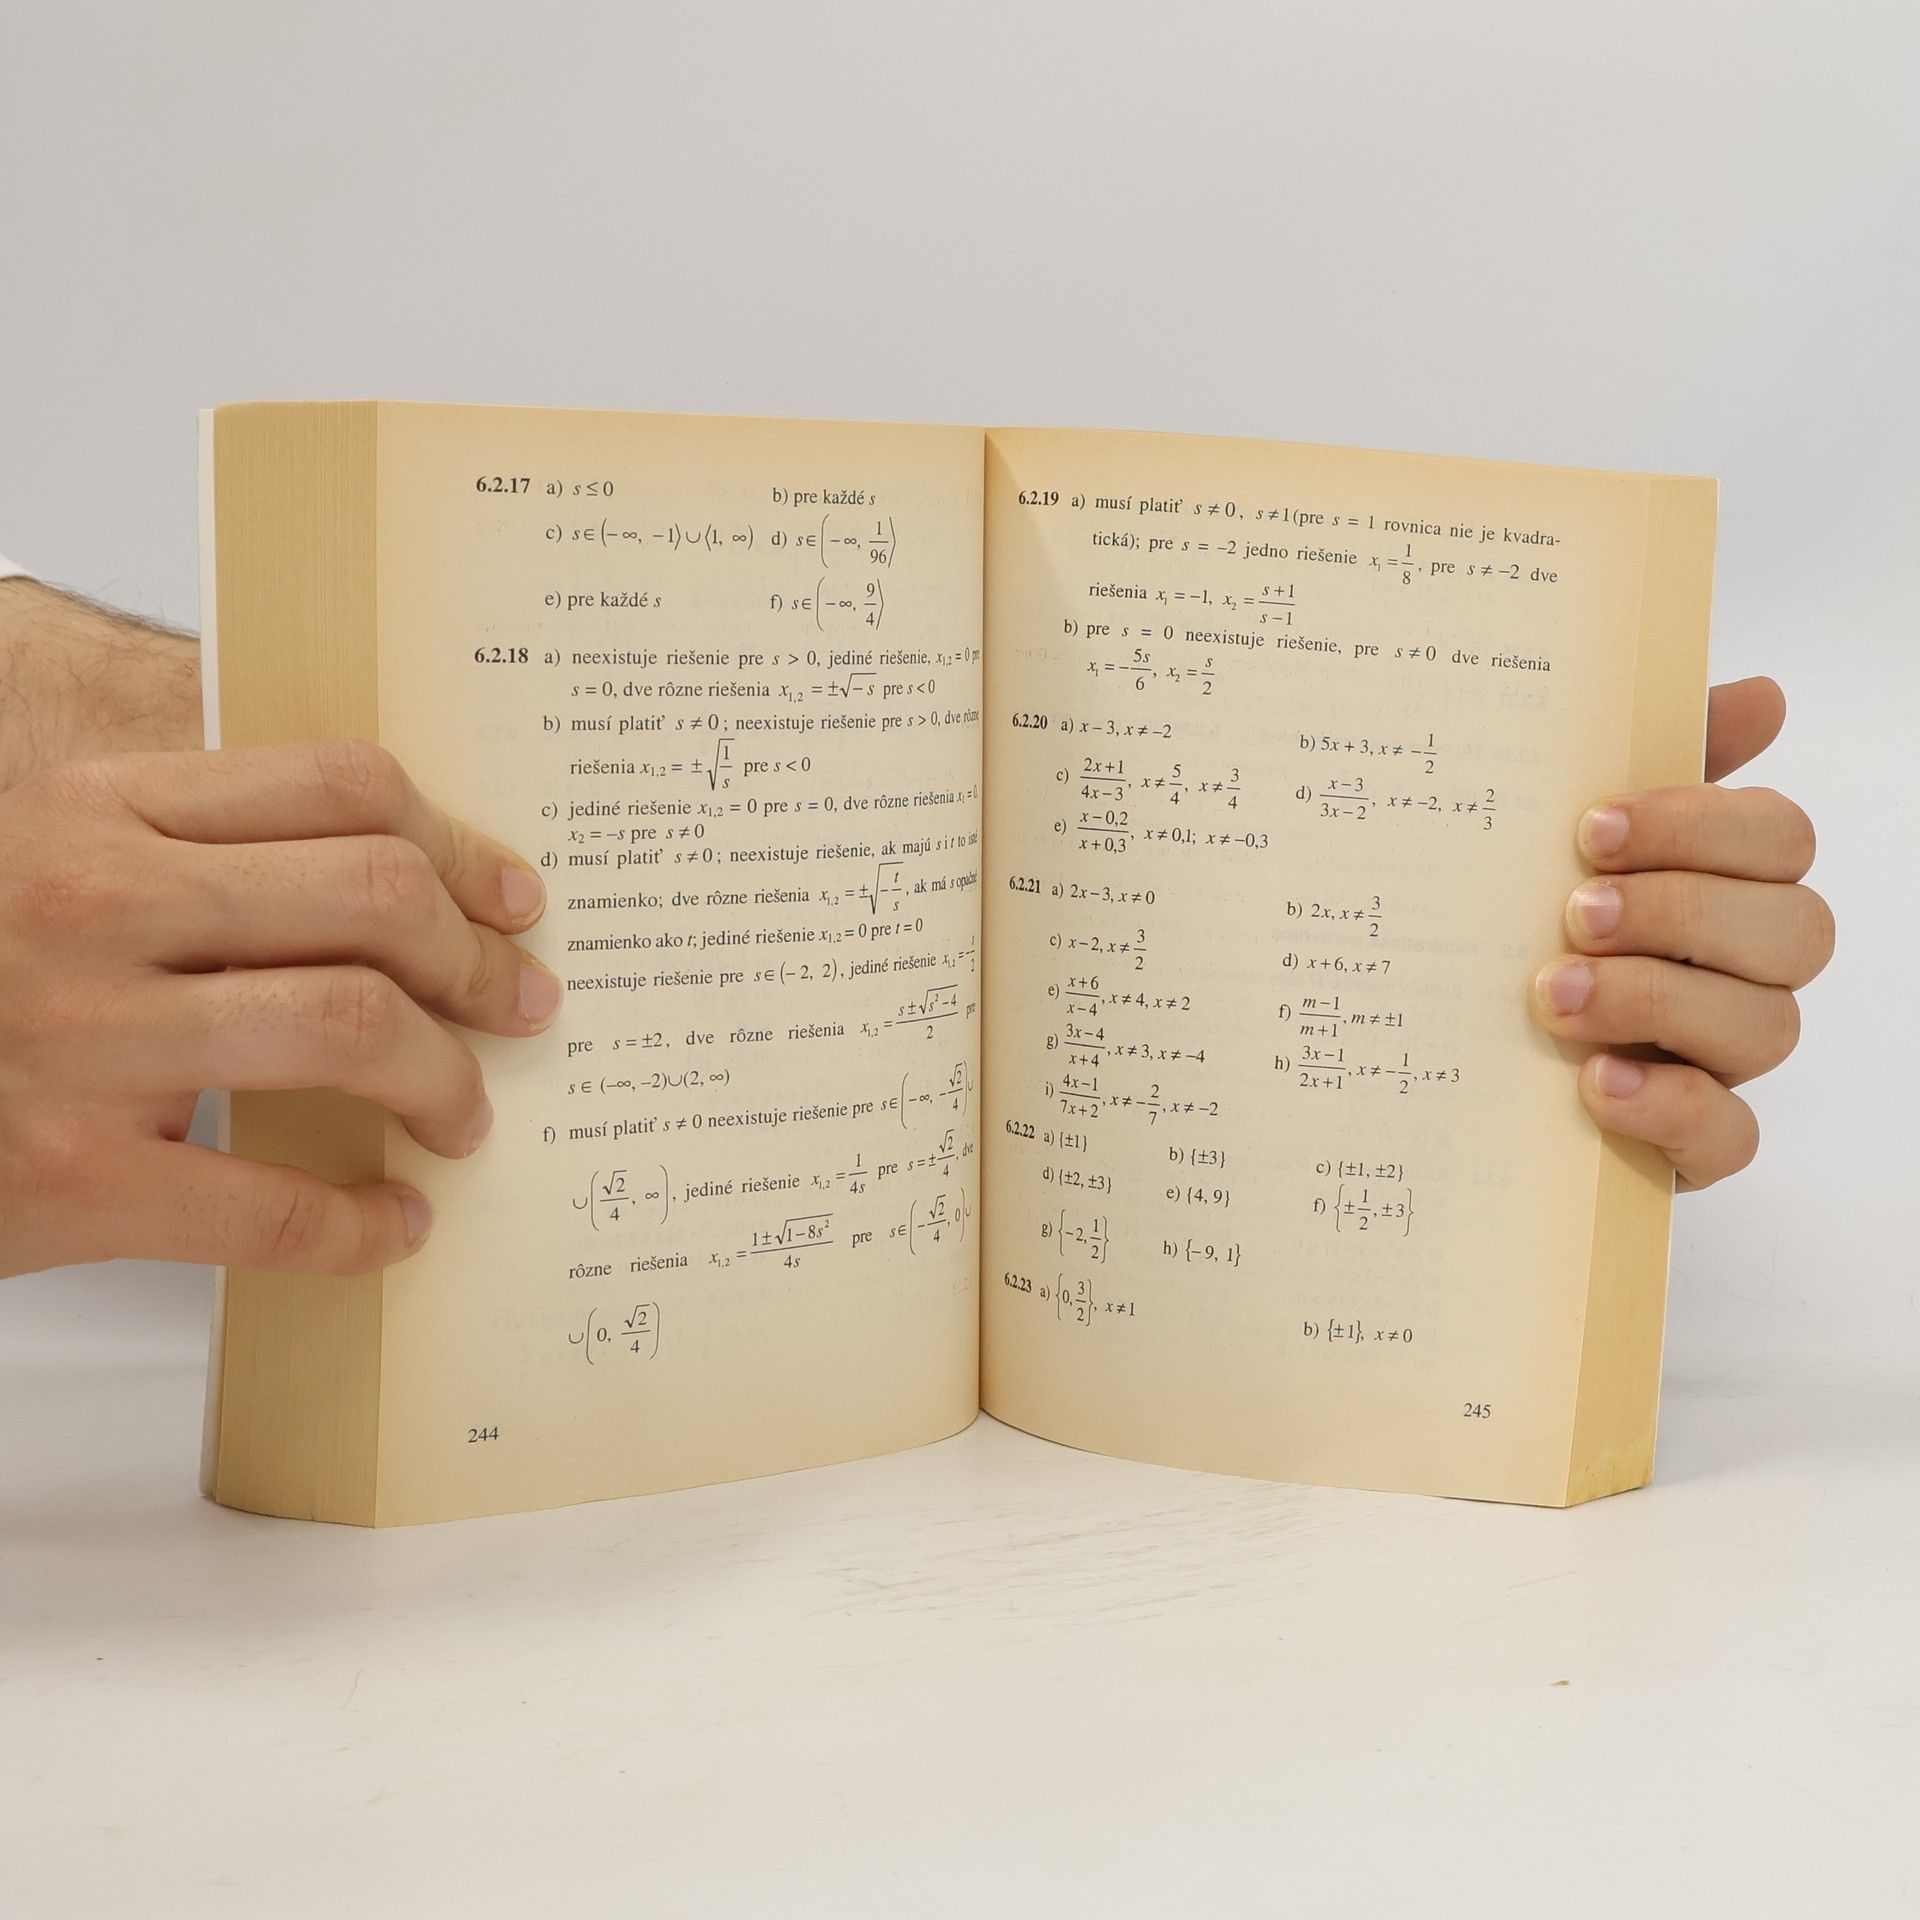 6.2.17 a) s ≤ 0 b) pre každé s
c) s∈(−∞, −1⟩∪⟨1, ∞) d) s∈(−∞, 1/96⟩
e) pre každé s f) s∈(−∞, 9/4⟩
6.2.18 a) neexistuje riešenie pre s > 0, jediné riešenie, x₁,₂ = 0 pre
s = 0, dve rôzne riešenia x₁,₂ = ±√−s pre s < 0
b) musí platiť s ≠ 0; neexistuje riešenie pre s > 0, dve rôzne
riešenia x₁,₂ = ±√1/s pre s < 0
c) jediné riešenie x₁,₂ = 0 pre s = 0, dve rôzne riešenia x₁ = 0,
x₂ = −s pre s ≠ 0
d) musí platiť s ≠ 0; neexistuje riešenie, ak majú s i t to isté
znamienko; dve rôzne riešenia x₁,₂ = ±√−t/s, ak má s opačné
znamienko ako t; jediné riešenie x₁,₂ = 0 pre t = 0
neexistuje riešenie pre s∈(−2, 2), jediné riešenie x₁,₂ =
pre s = ±2, dve rôzne riešenia x₁,₂ = (s±√s²−4)/2 pre
s ∈ (−∞, −2)∪(2, ∞)
f) musí platiť s ≠ 0 neexistuje riešenie pre s∈(−∞, −√2/4)∪
∪(√2/4, ∞), jediné riešenie x₁,₂ = 1/4s pre s = ±√2/4, dve
rôzne riešenia x₁,₂ = (1±√1−8s²)/4s pre s∈(−√2/4, 0)∪
∪(0, √2/4)
244
6.2.19 a) musí platiť s ≠ 0, s ≠ 1(pre s = 1 rovnica nie je kvadra-
tická); pre s = −2 jedno riešenie x₁ = 1/8, pre s ≠ −2 dve
riešenia x₁ = −1, x₂ = (s+1)/(s−1)
b) pre s = 0 neexistuje riešenie, pre s ≠ 0 dve riešenia
x₁ = −5s/6, x₂ = s/2
6.2.20 a) x − 3, x ≠ −2 b) 5x + 3, x ≠ −1/2
c) (2x+1)/(4x−3), x ≠ 5/4, x ≠ 3/4 d) (x−3)/(3x−2), x ≠ −2, x ≠ 2/3
e) (x−0,2)/(x+0,3), x ≠ 0,1; x ≠ −0,3
6.2.21 a) 2x − 3, x ≠ 0 b) 2x, x ≠ 3/2
c) x − 2, x ≠ 3/2 d) x + 6, x ≠ 7
e) (x+6)/(x−4), x ≠ 4, x ≠ 2 f) (m−1)/(m+1), m ≠ ±1
g) (3x−4)/(x+4), x ≠ 3, x ≠ −4 h) (3x−1)/(2x+1), x ≠ −1/2, x ≠ 3
i) (4x−1)/(7x+2), x ≠ −2/7, x ≠ −2
6.2.22 a) {±1} b) {±3} c) {±1, ±2}
d) {±2, ±3} e) {4, 9} f) {±1/2, ±3}
g) {−2, 1/2} h) {−9, 1}
6.2.23 a) {0, 3/2}, x ≠ 1 b) {±1}, x ≠ 0
245